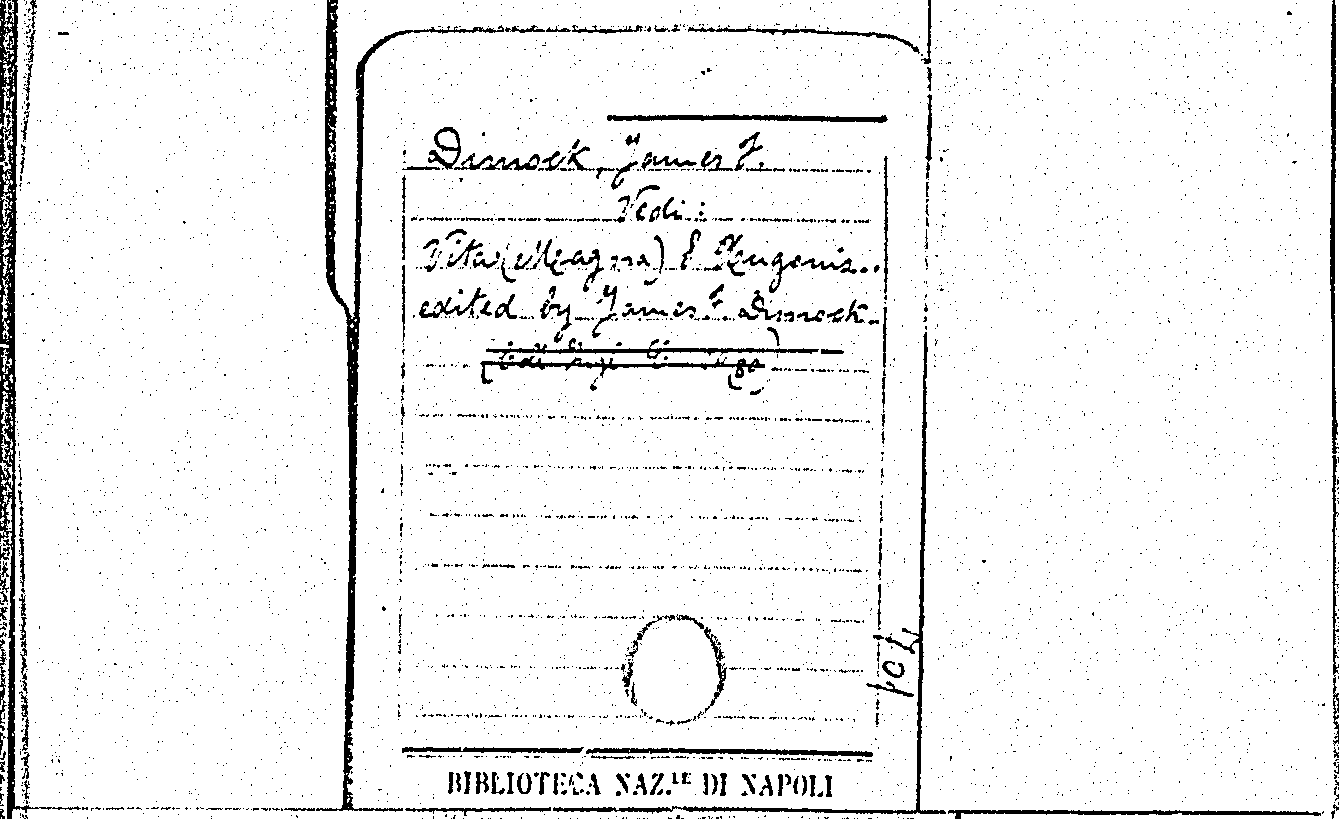 Dimock, James F.
Vedi:
Vita (Magna) S Hugonis..
edited by James F. Dimock.
104
BIBLIOTECA NAZ.LE DI NAPOLI